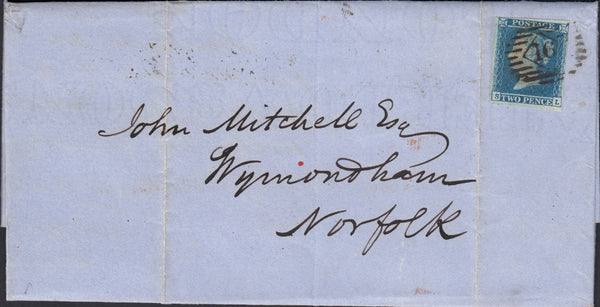 POSTAGE
46
S TWO PENCE L
John Mitchell Esq
Wymondham
Norfolk